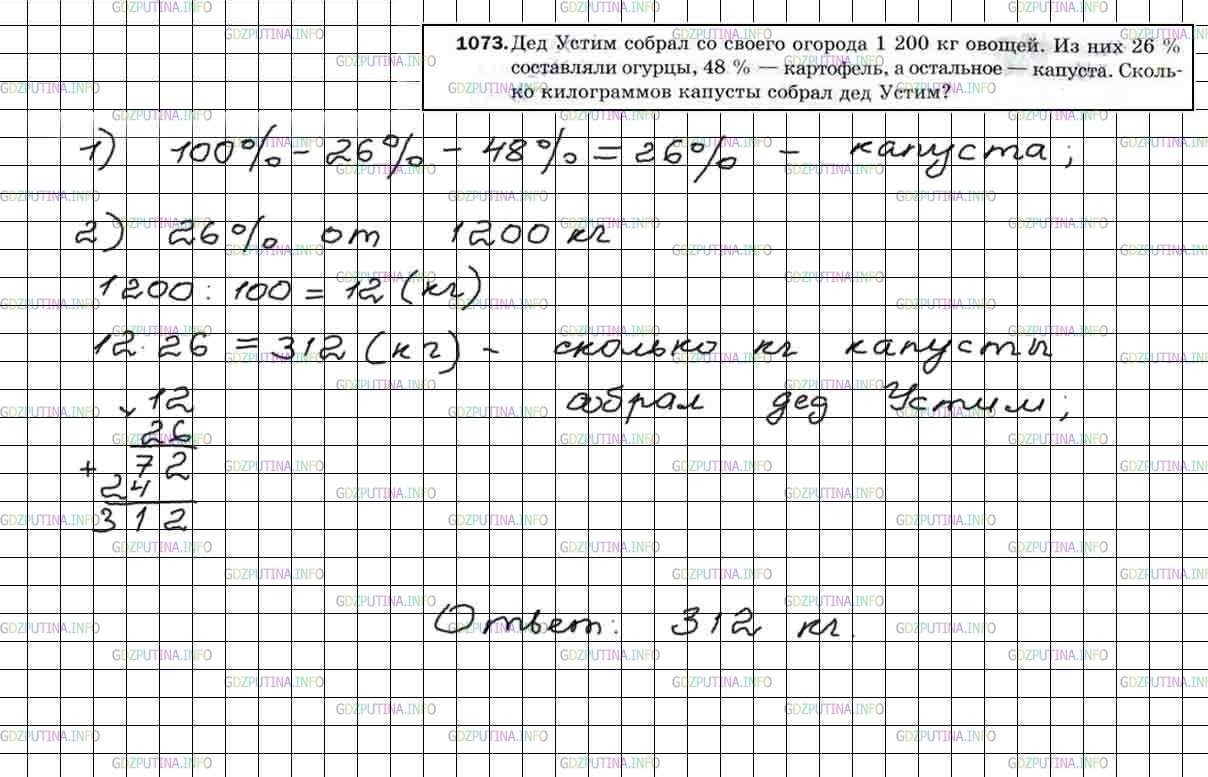 1073. Дед Устим собрал со своего огорода 1 200 кг овощей. Из них 26 %
составляли огурцы, 48 % — картофель, а остальное — капуста. Сколь-
ко килограммов капусты собрал дед Устим?
1) 100% - 26% - 48% = 26% - капуста;
2) 26% от 1200 кг
1200 : 100 = 12 (кг)
12 · 26 = 312 (кг) - сколько кг капусты
собрал дед Устим;
× 12
26
+ 72
24
312
Ответ: 312 кг.
GDZPUTINA.INFO